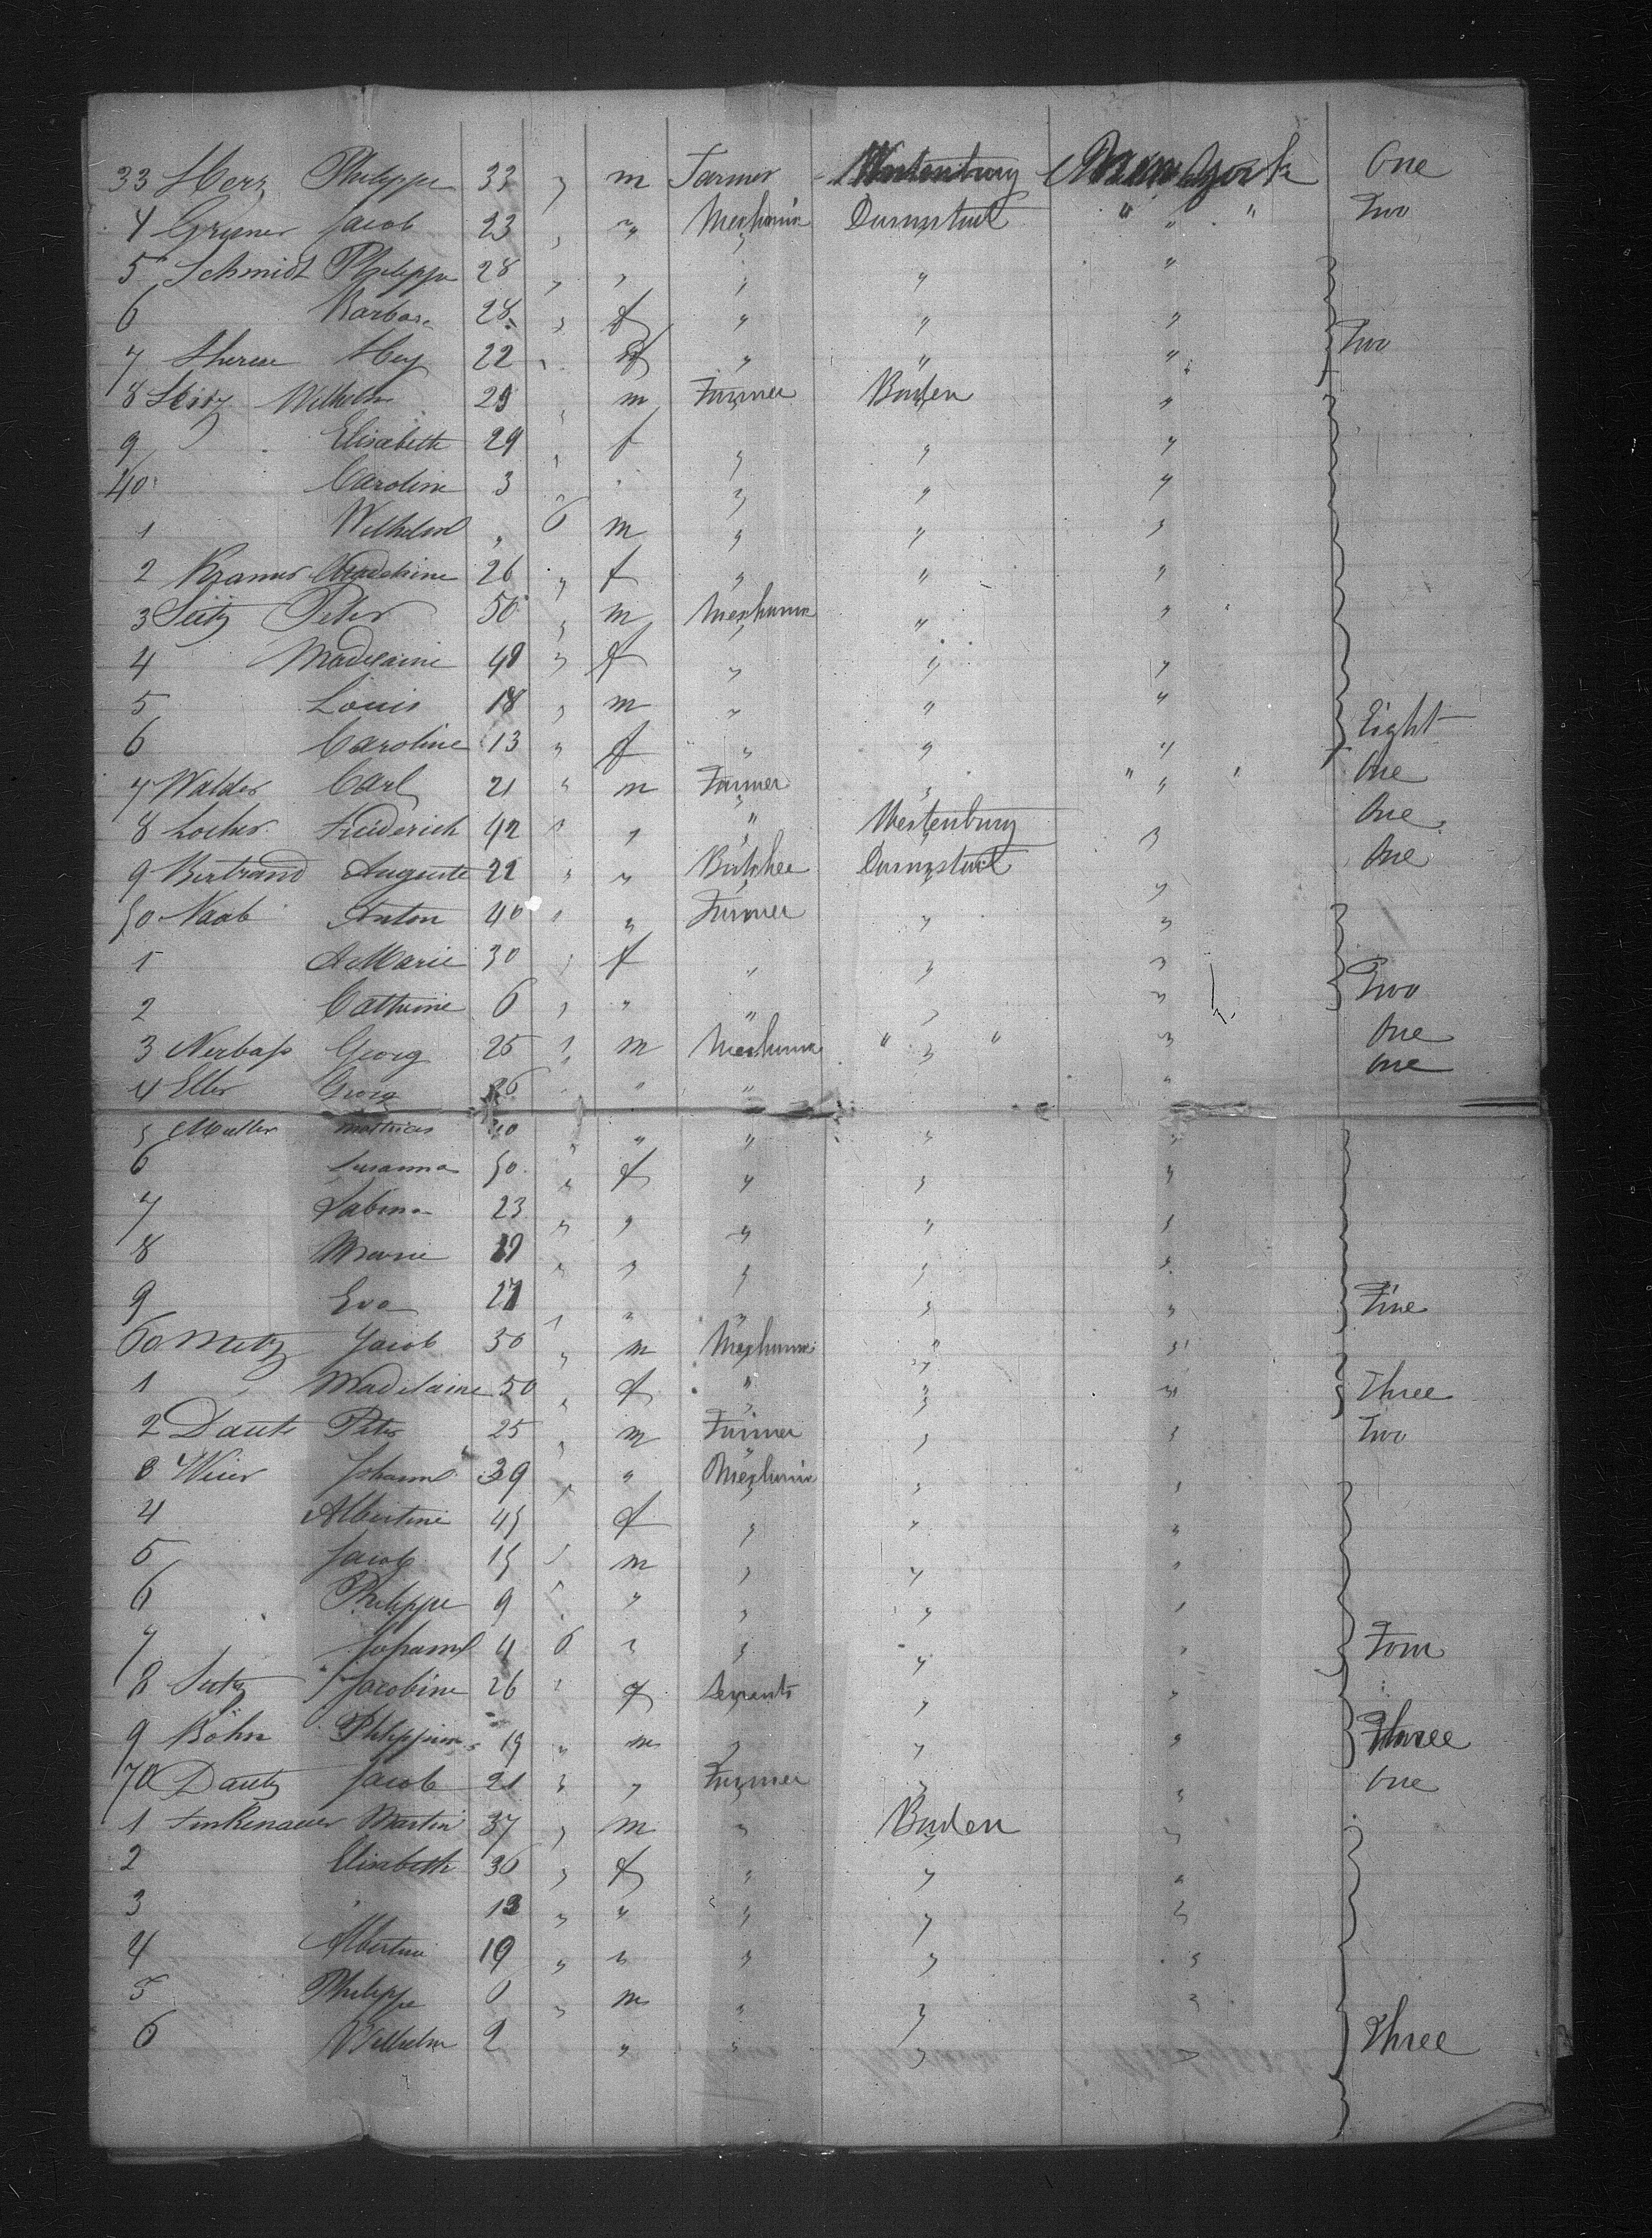 33 Herz Philippe 33 " m Farmer Wertenburg New York One
4 Gruner Jacob 23 " " Mechanic Darmstad " " " Two
5 Schmidt Philippe 28 " " " " "
6 Barbara 28 " f " " "
7 Hey 22 " f " " " Two
8 Seitz Wilhelm 29 " m Farmer Baden "
9 Elisabeth 29 " f " " "
40 Caroline 3 " " " " "
1 Wilhelm " 6 m " " "
2 Kramer 26 " f " " "
3 Seitz Peter 50 " m Mechanic " "
4 Madelaine 48 " f " " "
5 Louis 18 " m " " "
6 Caroline 13 " f " " " Eight
7 Walder Carl 21 " m Farmer " " " " One
8 Locher Friederich 42 " " " Wertenburg " One
9 Bertrand Auguste 22 " " Butcher Darmstad " One
50 Naab Anton 40 " " Farmer " "
1 A Marie 30 " f " " "
2 Cathrine 6 " " " " " Two
3 Nerbass Georg 25 " m Mechanic " " " " One
4 Eller Georg 26 " " " " One
5 Muller Mathias " " " " "
6 Susanna 50 " f " " "
7 Sabina 23 " " " " "
8 Marie 19 " " " " "
9 Eva 21 " " " " " Five
60 Metz Jacob 50 " m Mechanic " "
1 Madelaine 50 " f " " " Three
2 Dautz Peter 25 " m Farmer " " Two
3 Weier Johann 39 " " Mechanic " "
4 Albertine 45 f " " "
5 Jacob 15 " m " " "
6 Philippe 9 " " " " "
7 Johann 4 6 " " " " Four
8 Seitz Jacobine 26 " f Servants " "
9 Böhn 19 " m " " " Three
70 Dautz Jacob 21 " " Farmer " " One
1 Finkenauer Martin 37 " m " Baden "
2 Elisabeth 36 " f " " "
3 " 13 " " " " "
4 Albertine 10 " " " " "
5 Philippe " m " " "
6 Wilhelm 2 " " " " Three